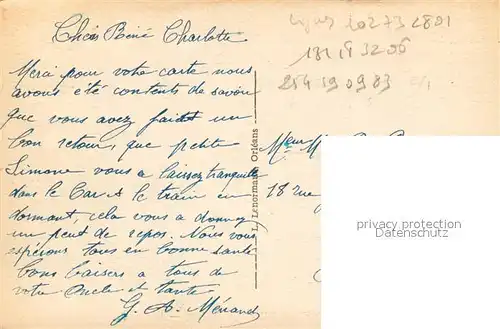 Chers René Charlotte
Merci pour votre carte nous
avons été contents de savoir
que vous avez faidt un
bon retour, que petite
Simone vous a laissez tranquille
dans le Car & le train en
dormant, cela vous a donnez
un peut de repos. Nous vous
espérions tous en bonne santé
bons baisers a tous de
votre Oncle et tante
G. A. Ménand
L. Lenormand, Orléans
20273 2801
181 19 32 06
254 39 09 83
18 rue
privacy protection
Datenschutz